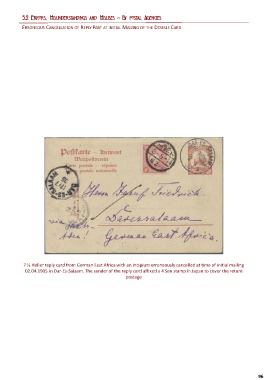 5.2 Errors, Misunderstandings and Misuses – By postal Agencies
Erroneous Cancellation of Reply Part at initial Mailing of the Double Card
Postkarte — Antwort
Weltpostverein
Carte postale – réponse
Union postale universelle
DAR-ES-SALAAM
Herrn
Friedrich
Daressalaam
via
German East Africa.
7½ Heller reply card from German East Africa with an imprint erroneously cancelled at time of initial mailing
02.04.1905 in Dar-Es-Salaam. The sender of the reply card affixed a 4 Sen stamp in Japan to cover the return
postage.
96